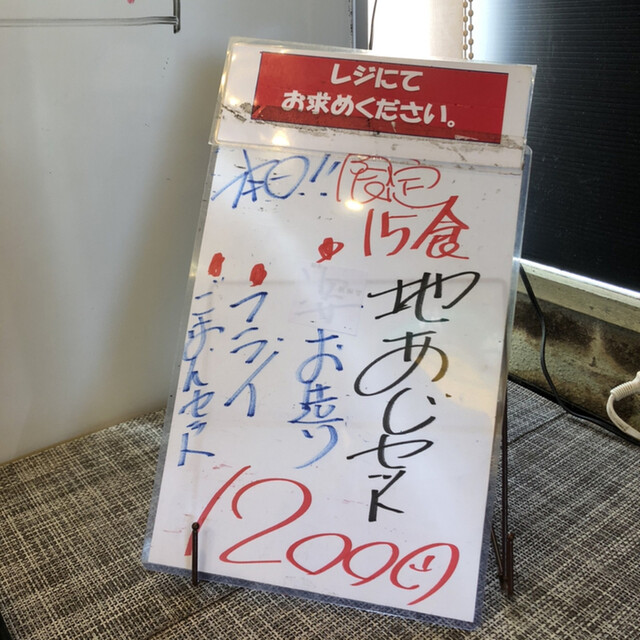 レジにて
お求めください。
本日!!
限定
15食
地あじセット
・お造り
・フライ
・ごはんセット
1200円